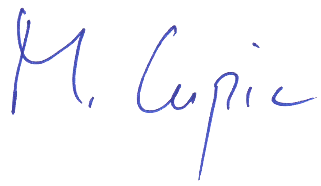 M. Cupic